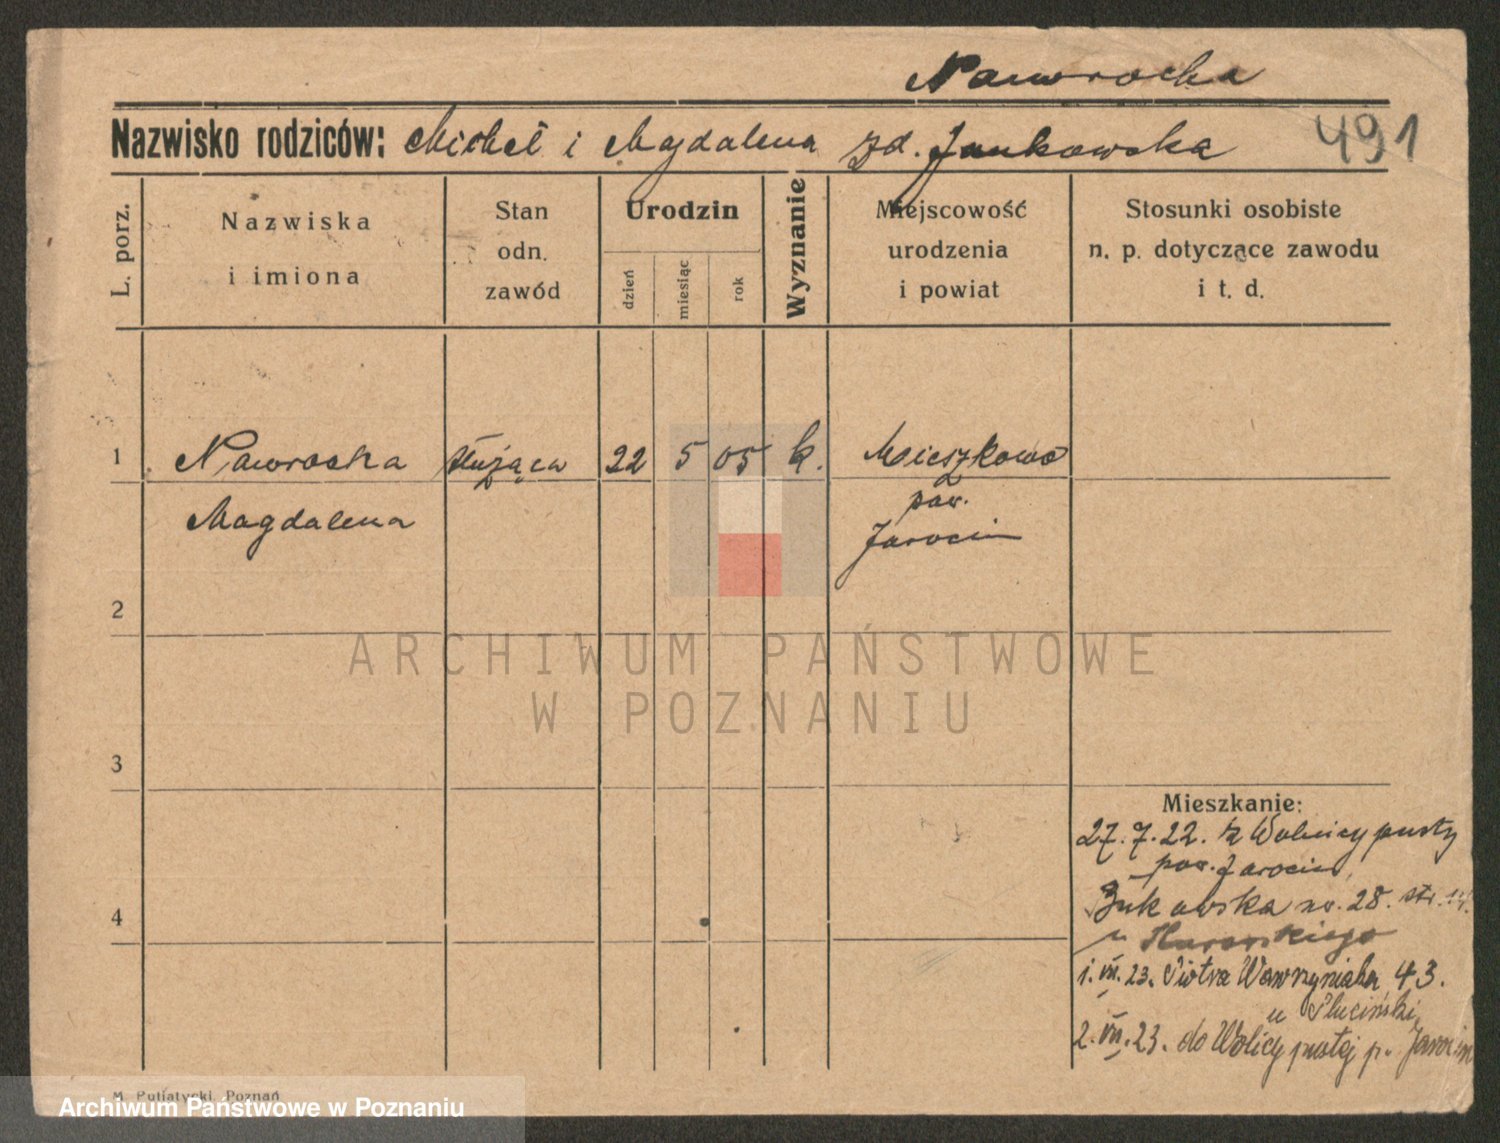 Nawrocka
Nazwisko rodziców: Michał i Magdalena zd. Jankowska 491
L. porz.
Nazwiska
i imiona
Stan
odn.
zawód
Urodzin
dzień
miesiąc
rok
Wyznanie
Miejscowość
urodzenia
i powiat
Stosunki osobiste
n. p. dotyczące zawodu
i t. d.
1 Nawrocka służąca 22 5 05 k. Mieszkowo
Magdalena pow.
Jarocin
2
3
4
ARCHIWUM PAŃSTWOWE
W POZNANIU
Mieszkanie:
27.7.22. z Wolicy pusty
pow. Jarocin,
Bukowska no. 28. str.
u
1.VII.23. Piotra Wawrzyniaka 43.
u Pluciński
2.VII.23. do Wolicy pustej p. Jarocin
M. Putiatycki, Poznań
Archiwum Państwowe w Poznaniu